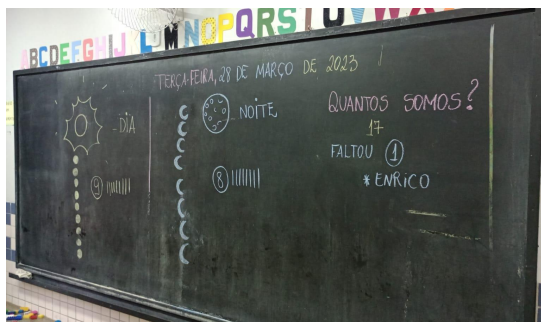 ABCDEFGHIJKLMNOPQRSTUVWX
TERÇA-FEIRA, 28 DE MARÇO DE 2023
DIA
9
NOITE
8
QUANTOS SOMOS?
17
FALTOU 1
* ENRICO